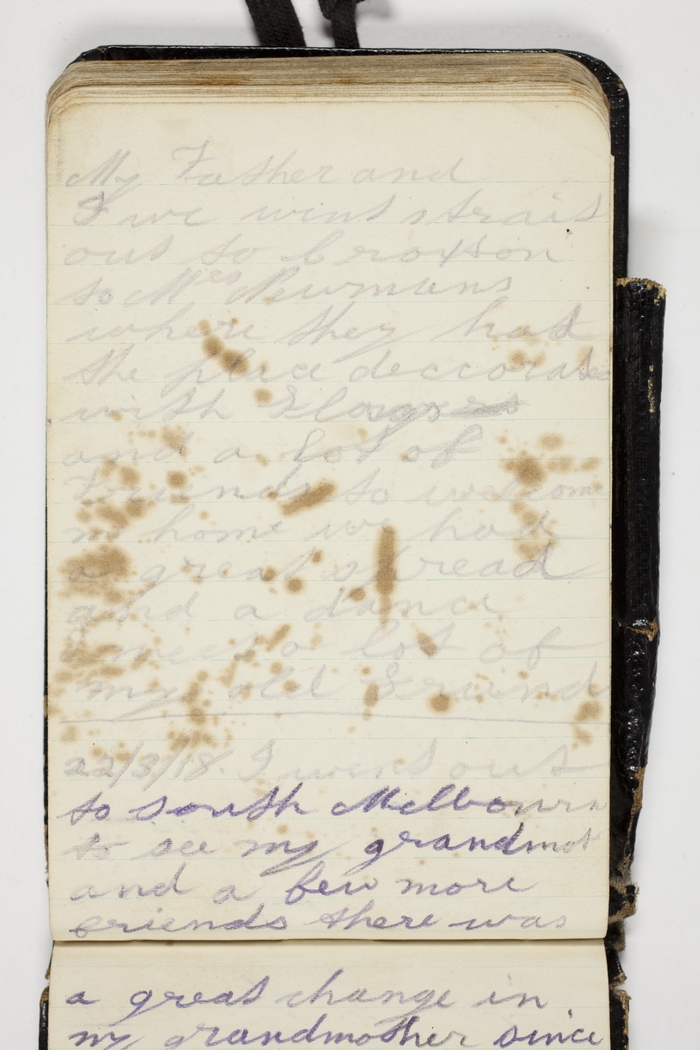 My Father and
I we went strait
out to Croxton
to Mrs Newmans
where they had
the place deccorated
with Flowers
and a lot of
Friends to welcome
m home we had
a great spread
and a dance
I meet a lot of
my old Friend
22/3/18. I went out
to south Melbourn
to see my grandmot
and a few more
friends there was
a great change in
my grandmother since